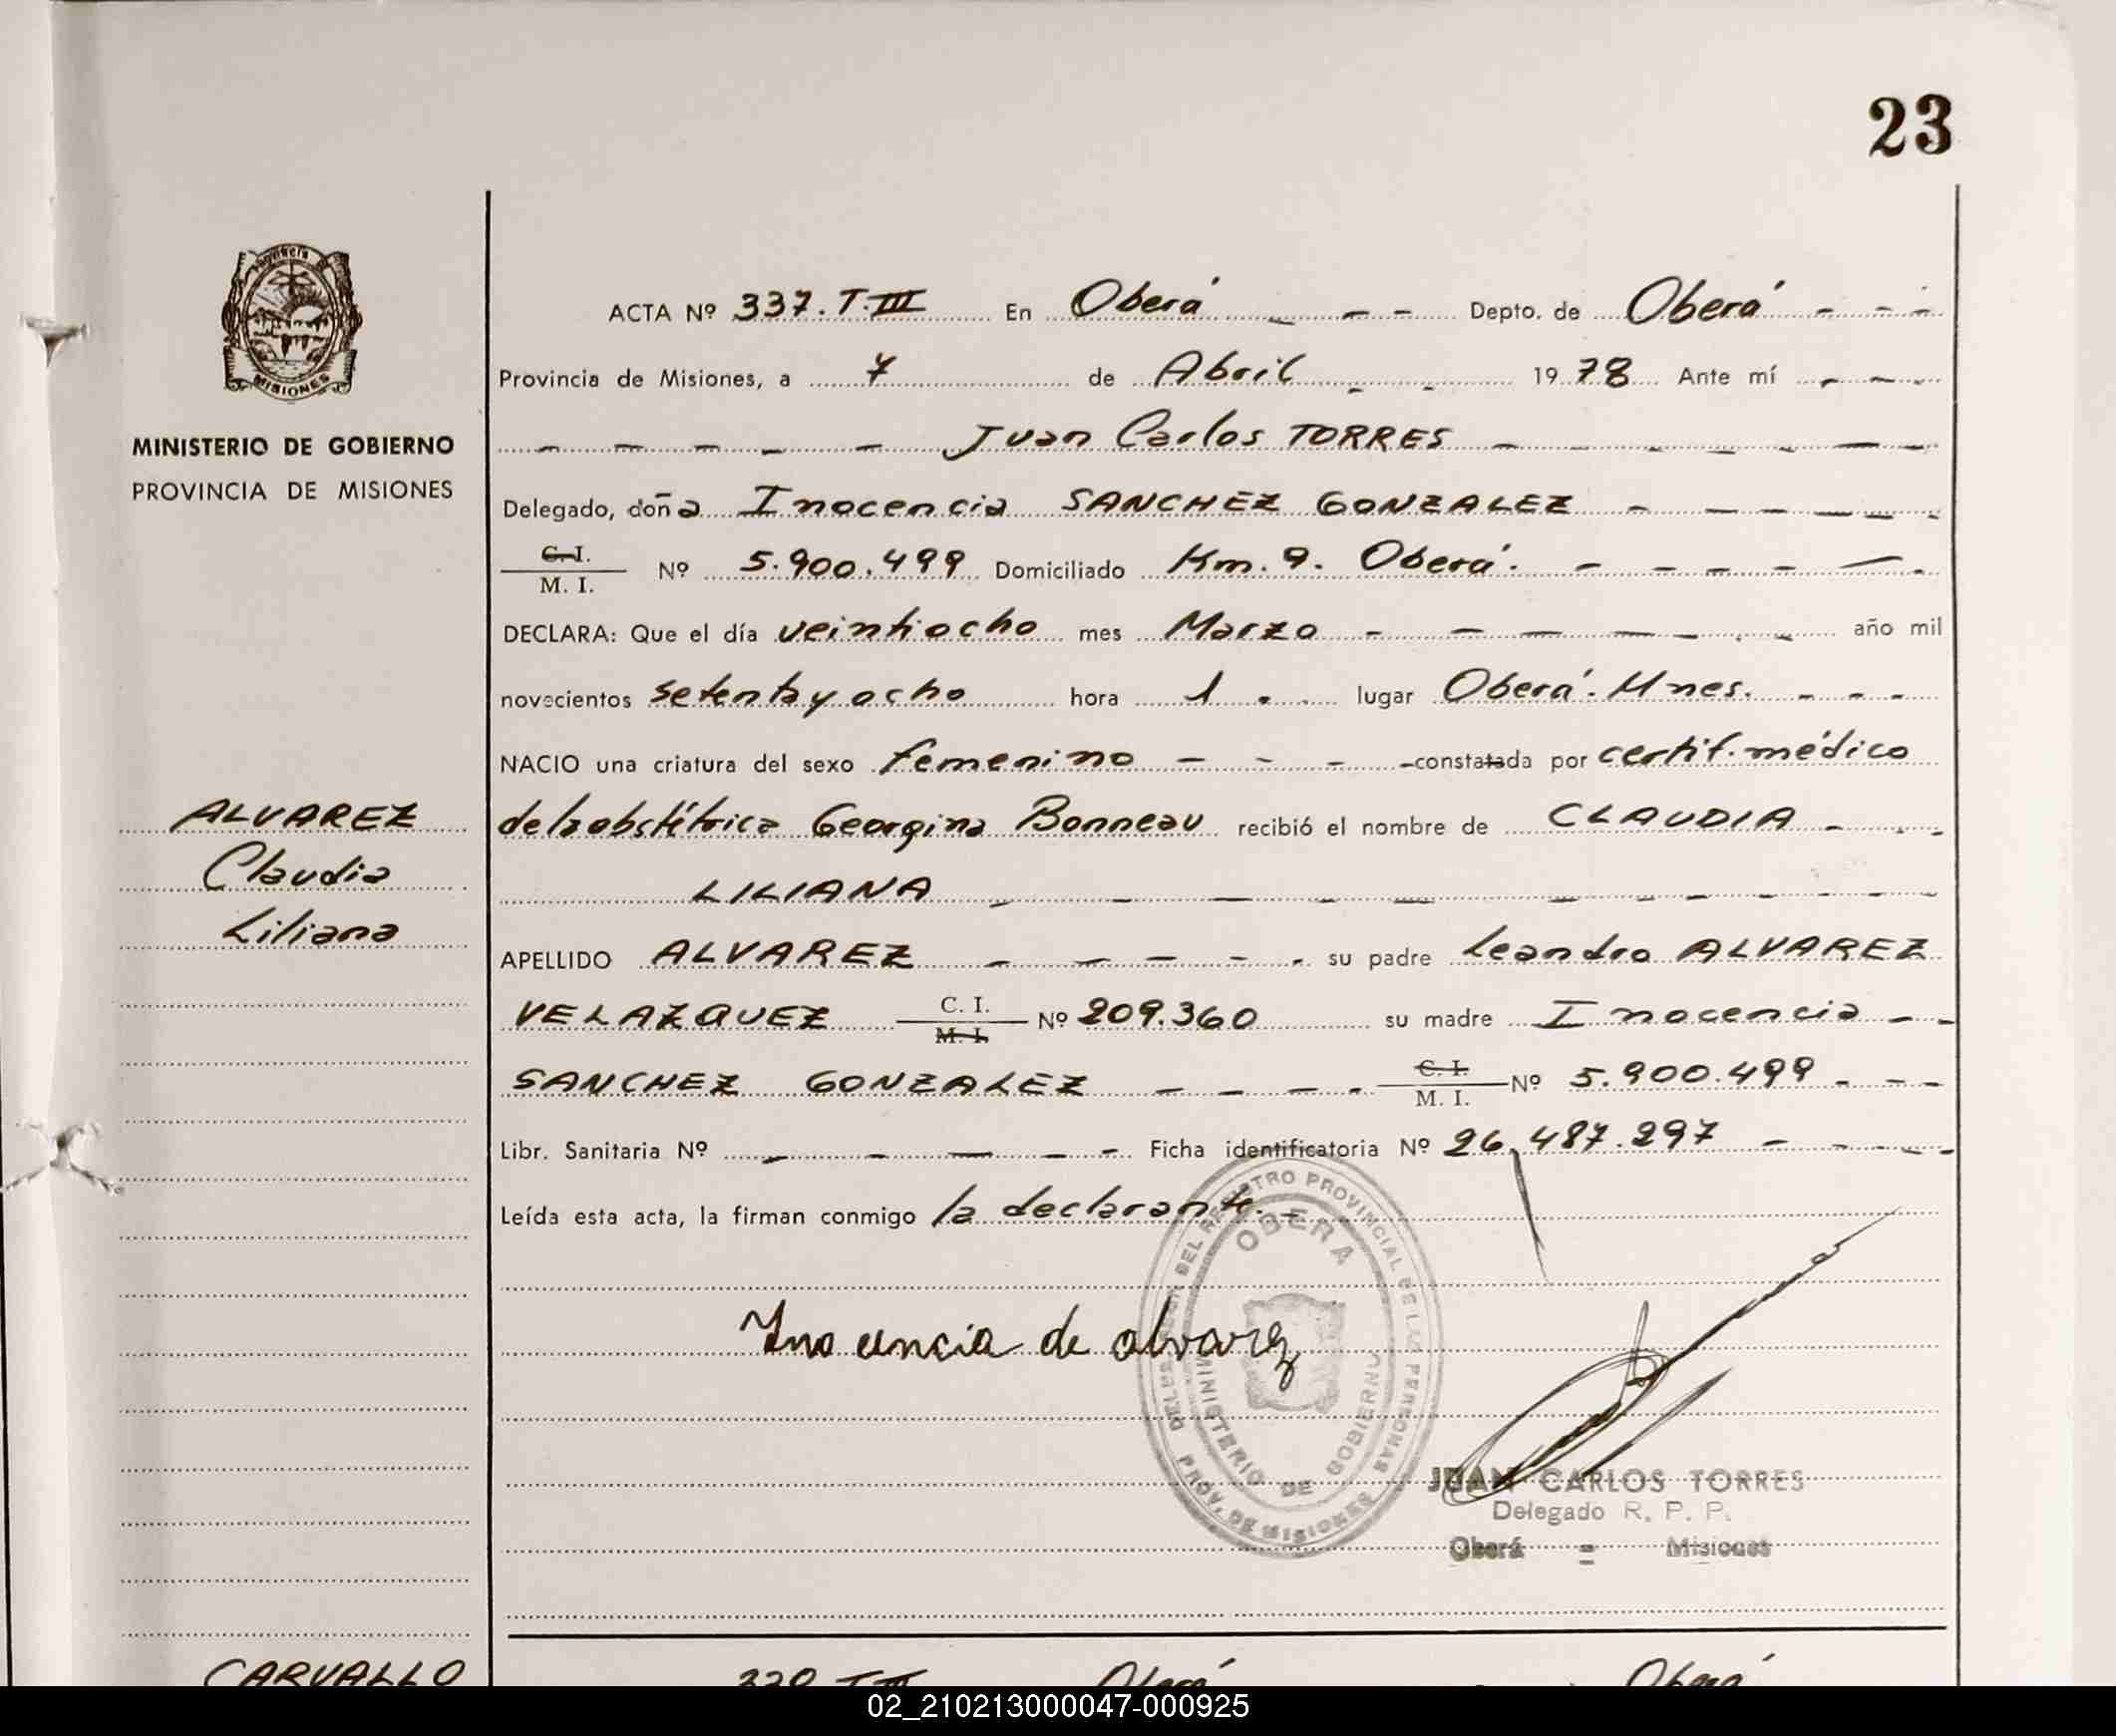 23
MISIONES
MINISTERIO DE GOBIERNO
PROVINCIA DE MISIONES
ALVAREZ
Claudia
Liliana
ACTA Nº 337. T. III En Oberá Depto. de Oberá
Provincia de Misiones, a 7 de Abril 1978 Ante mí
Juan Carlos TORRES
Delegado, doña Inocencia SANCHEZ GONZALEZ
C. I.
M. I. Nº 5.900.499 Domiciliado Km. 9. Oberá.
DECLARA: Que el día veintiocho mes Marzo año mil
novecientos setenta y ocho hora 1. lugar Oberá. Mnes.
NACIO una criatura del sexo femenino constatada por certif. médico
de la obstétrica Georgina Bonneau recibió el nombre de CLAUDIA
LILIANA
APELLIDO ALVAREZ su padre Leandro ALVAREZ
VELAZQUEZ C. I. M. I. Nº 209.360 su madre Inocencia
SANCHEZ GONZALEZ C. I. M. I. Nº 5.900.499
Libr. Sanitaria Nº Ficha identificatoria Nº 26.487.297
Leída esta acta, la firman conmigo la declarante.
Inocencia de alvarez
DEL REGISTRO PROVINCIAL DE LAS PERSONAS
OBERA
MINISTERIO DE GOBIERNO
PROV. DE MISIONES
JUAN CARLOS TORRES
Delegado R. P. P.
Oberá - Misiones
CARVALLO
Oberá Oberá
02_210213000047-000925